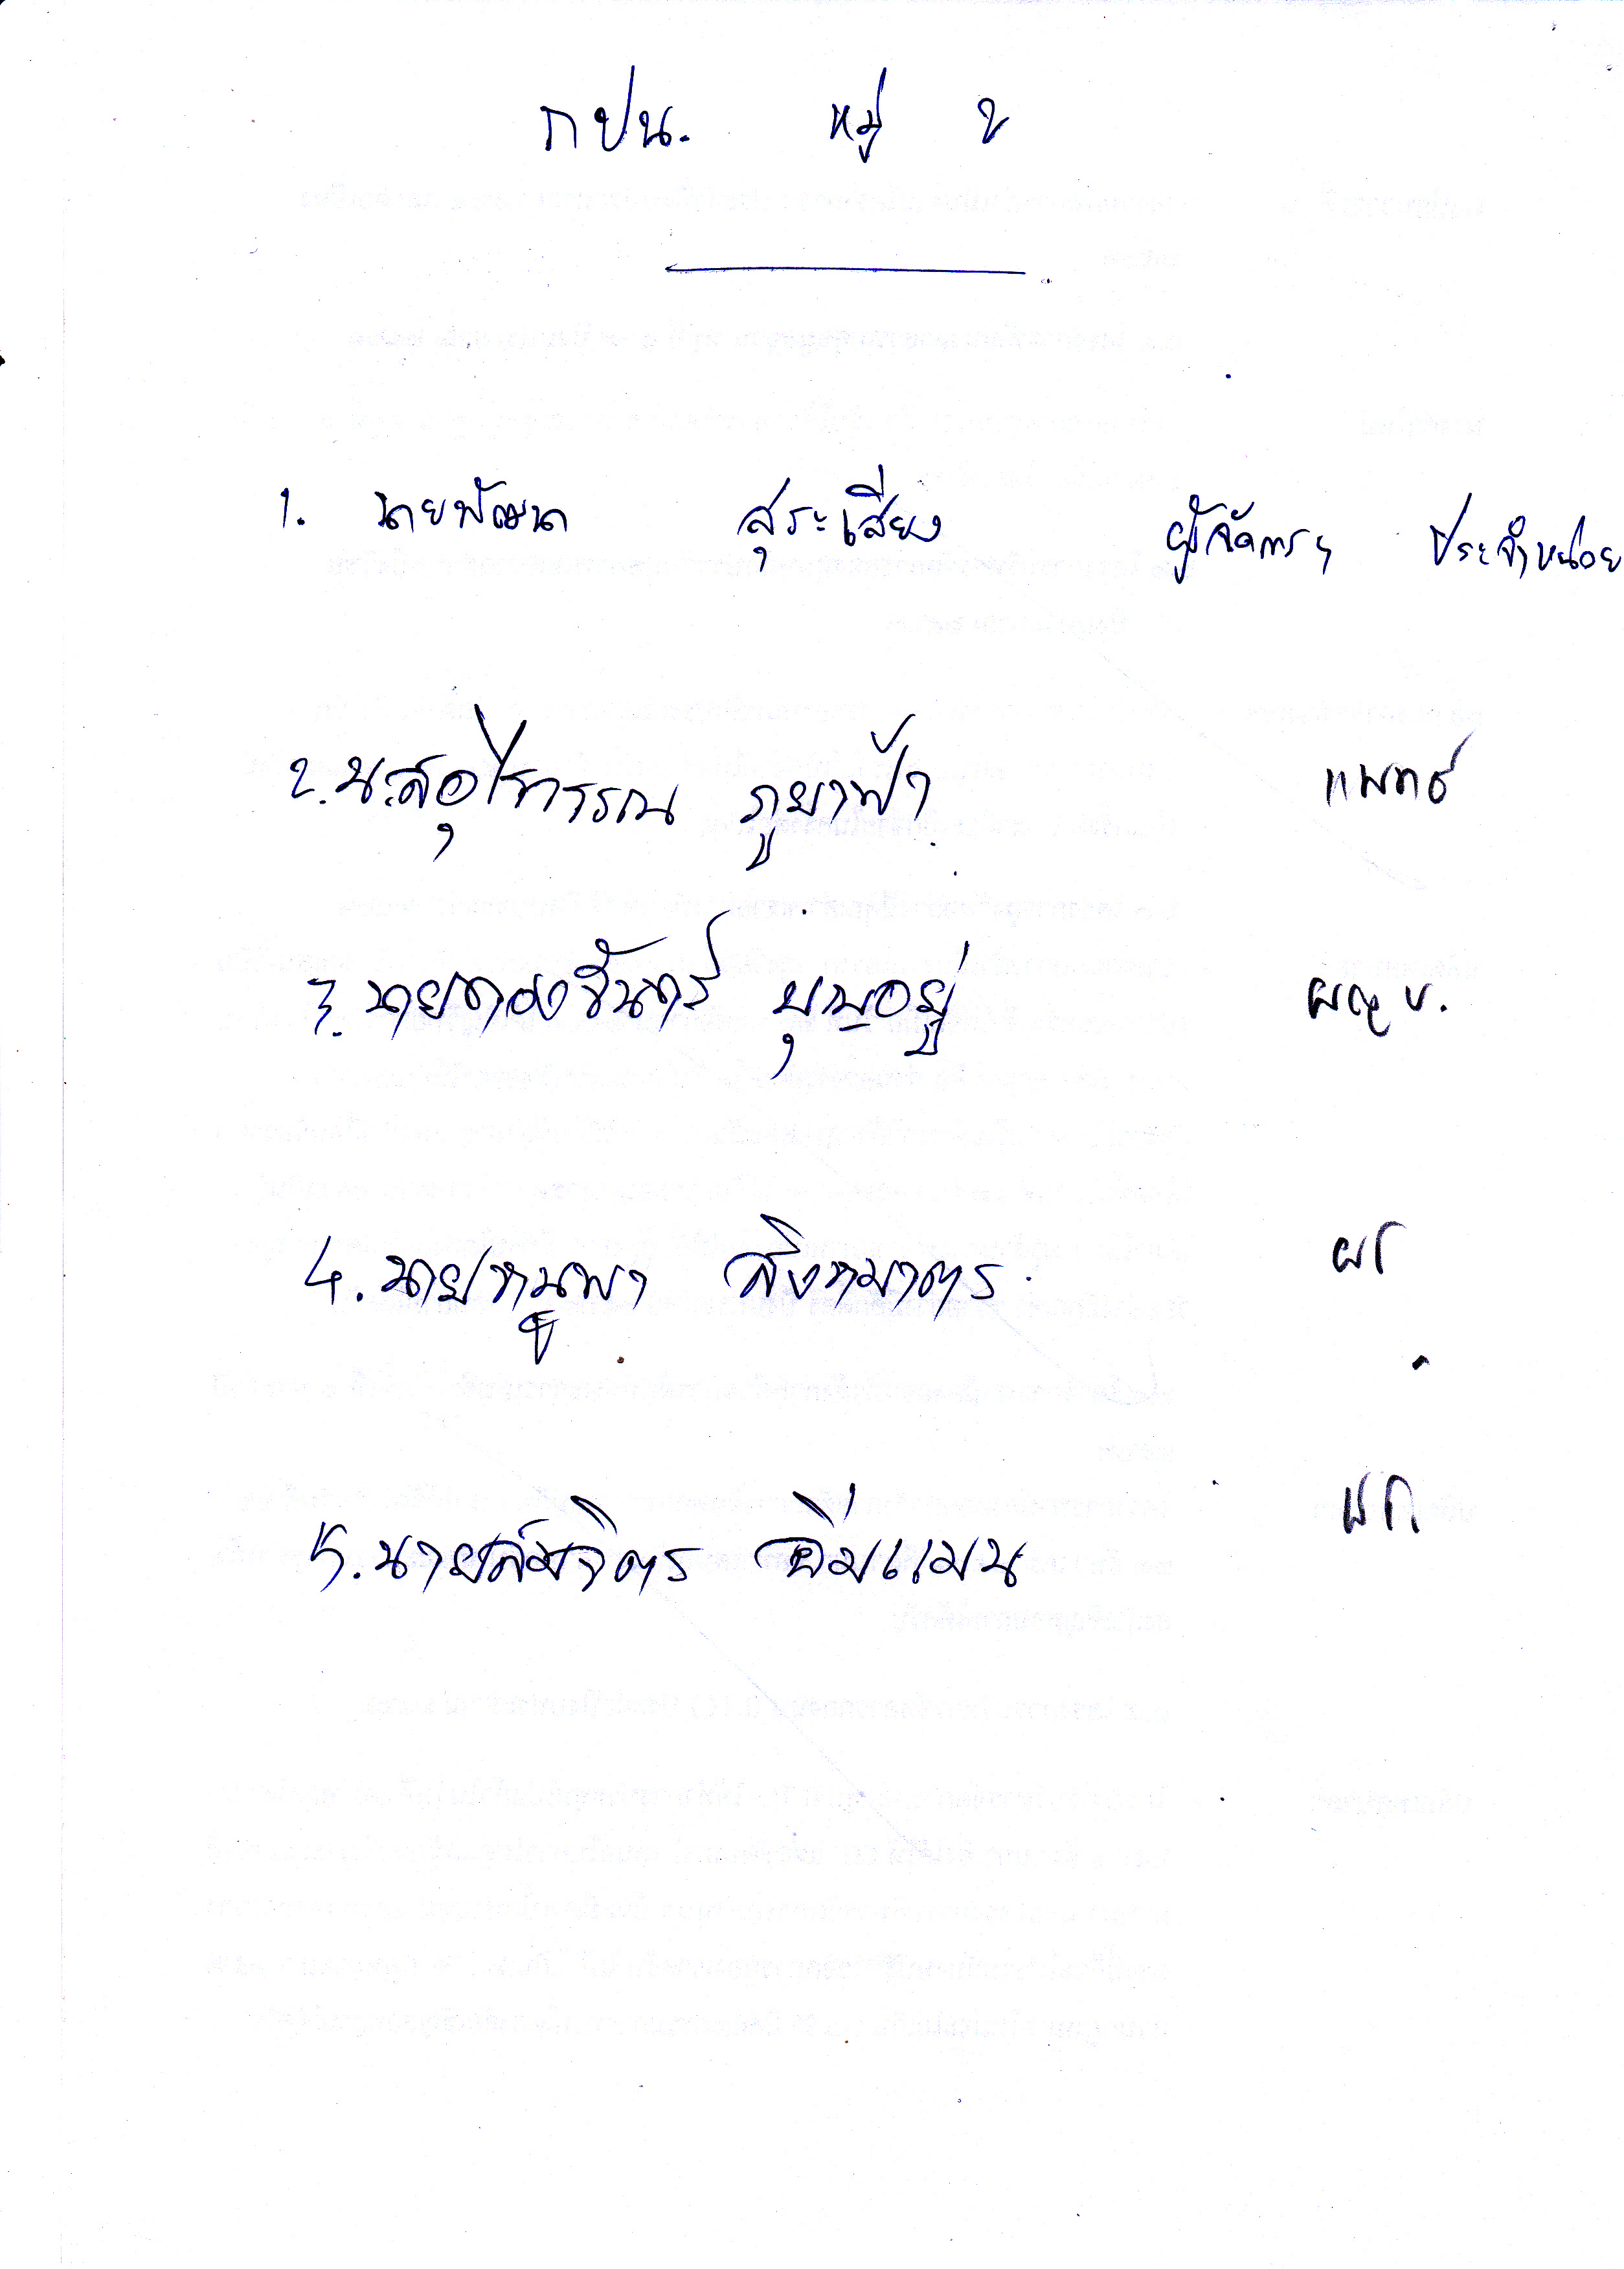 กปน. หมู่ 2
1. นายพัฒนา สุระเสียง ผู้จัดการฯ ประจำหน่วย
2. น.ส.อุไรวรรณ ภูยาฟ้า แพทย์
3. นายทองจันทร์ บุญอยู่ ผญบ.
4. นายหนูพา สิงหมาตร ผร
5. นายสมจิตร อิ่มแมน